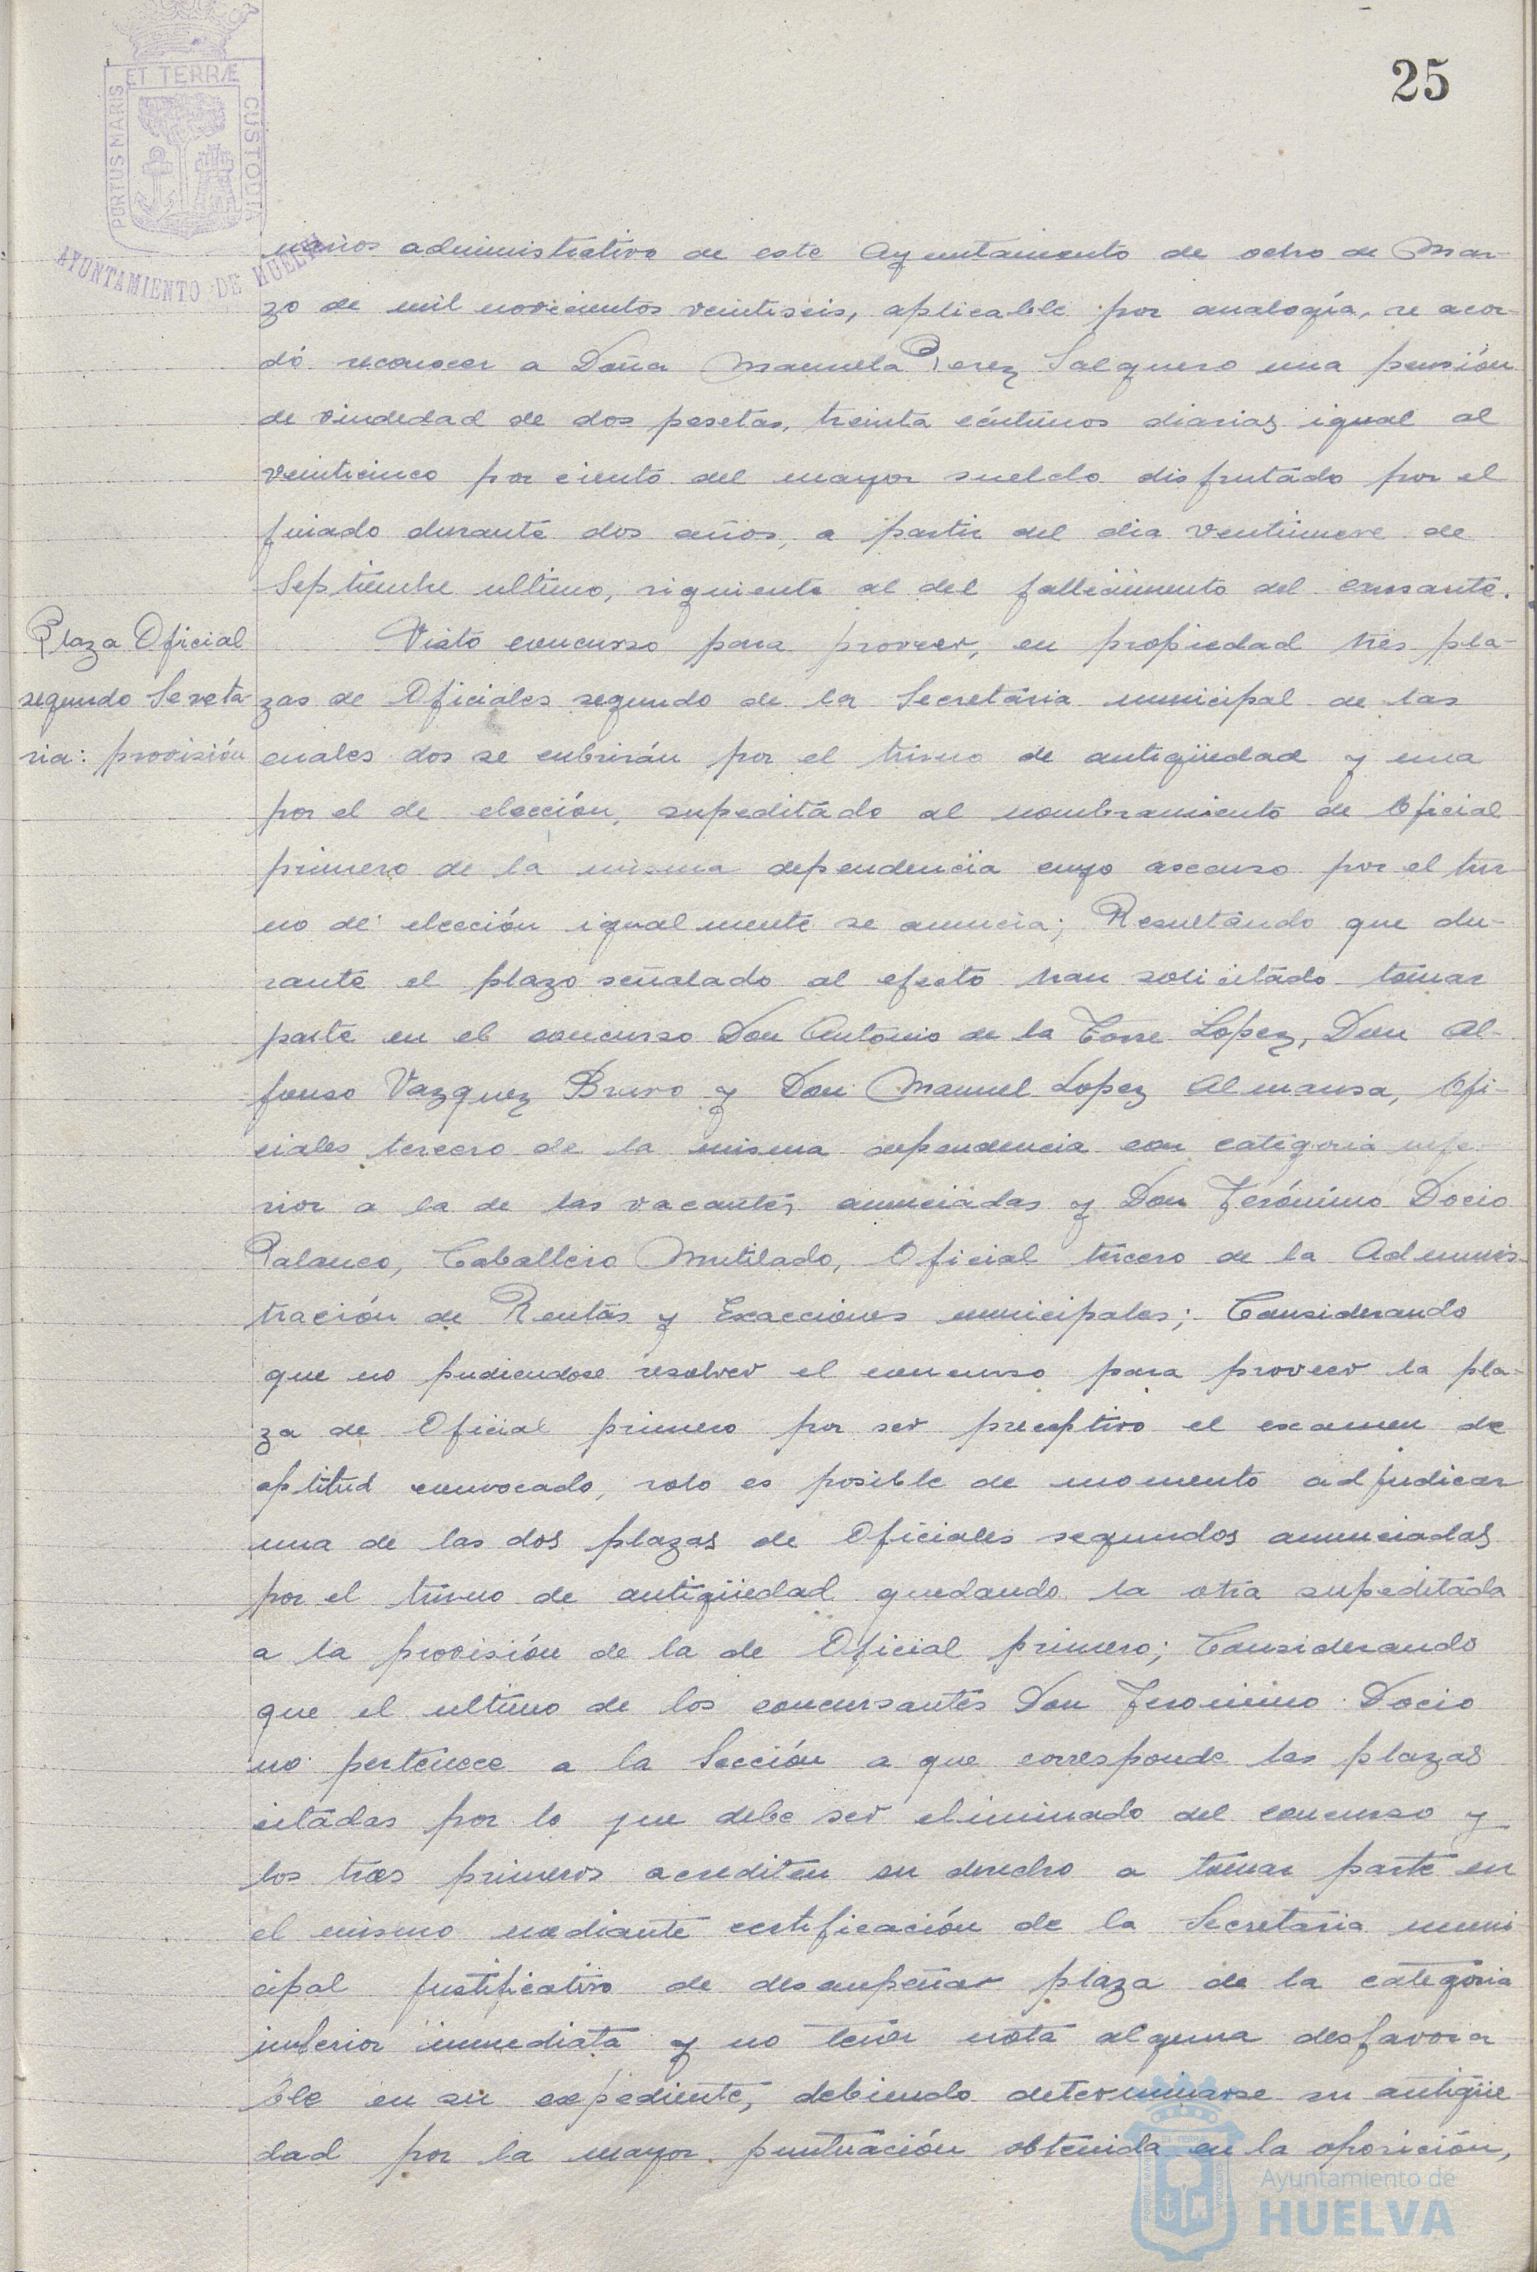 25
PORTUS MARIS ET TERRÆ CUSTODIA
AYUNTAMIENTO DE HUELVA
narios administrativo de este Ayuntamiento de ocho de Mar-
zo de mil novecientos veintiseis, aplicable por analogía, se acor-
dó reconocer a Doña Manuela Perez Salguero una pensión
de viudedad de dos pesetas, treinta céntimos diarias igual al
veinticinco por ciento del mayor sueldo disfrutado por el
finado durante dos años, a partir del dia ventinueve de
Septiembre ultimo, siguiente al del fallecimiento del causante.
Plaza Oficial
segundo Secreta-
ria: provisión
Visto concurso para proveer, en propiedad tres pla-
zas de Oficiales segundo de la Secretaria municipal de las
cuales dos se cubrirán por el turno de antigüedad y una
por el de elección, supeditado al nombramiento de Oficial
primero de la misma dependencia cuyo ascenso por el tur-
no de elección igualmente se anuncia; Resultando que du-
rante el plazo señalado al efecto han solicitado tomar
parte en el concurso Don Antonio de la Torre Lopez, Don Al-
fonso Vazquez Bravo y Don Manuel Lopez Almansa, Ofi-
ciales tercero de la misma dependencia con categoria infe-
rior a la de las vacantes anunciadas y Don Jerónimo Docio
Palanco, Caballero Mutilado, Oficial tercero de la Adminis-
tración de Rentas y Exacciones municipales; Considerando
que no pudiendose resolver el concurso para proveer la pla-
za de Oficial primero por ser preceptivo el examen de
aptitud convocado, solo es posible de momento adjudicar
una de las dos plazas de Oficiales segundos anunciadas
por el turno de antigüedad quedando la otra supeditada
a la provisión de la de Oficial primero; Considerando
que el ultimo de los concursantes Don Jeronimo Docio
no pertenece a la Sección a que corresponde las plazas
citadas por lo que debe ser eliminado del concurso y
los tres primeros acrediten su derecho a tomar parte en
el mismo mediante certificación de la Secretaria muni-
cipal justificativo de desempeñar plaza de la categoria
inferior inmediata y no tener nota alguna desfavora-
ble en su expediente, debiendo determinarse su antigüe-
dad por la mayor puntuación obtenida en la oposición,
Ayuntamiento de
HUELVA